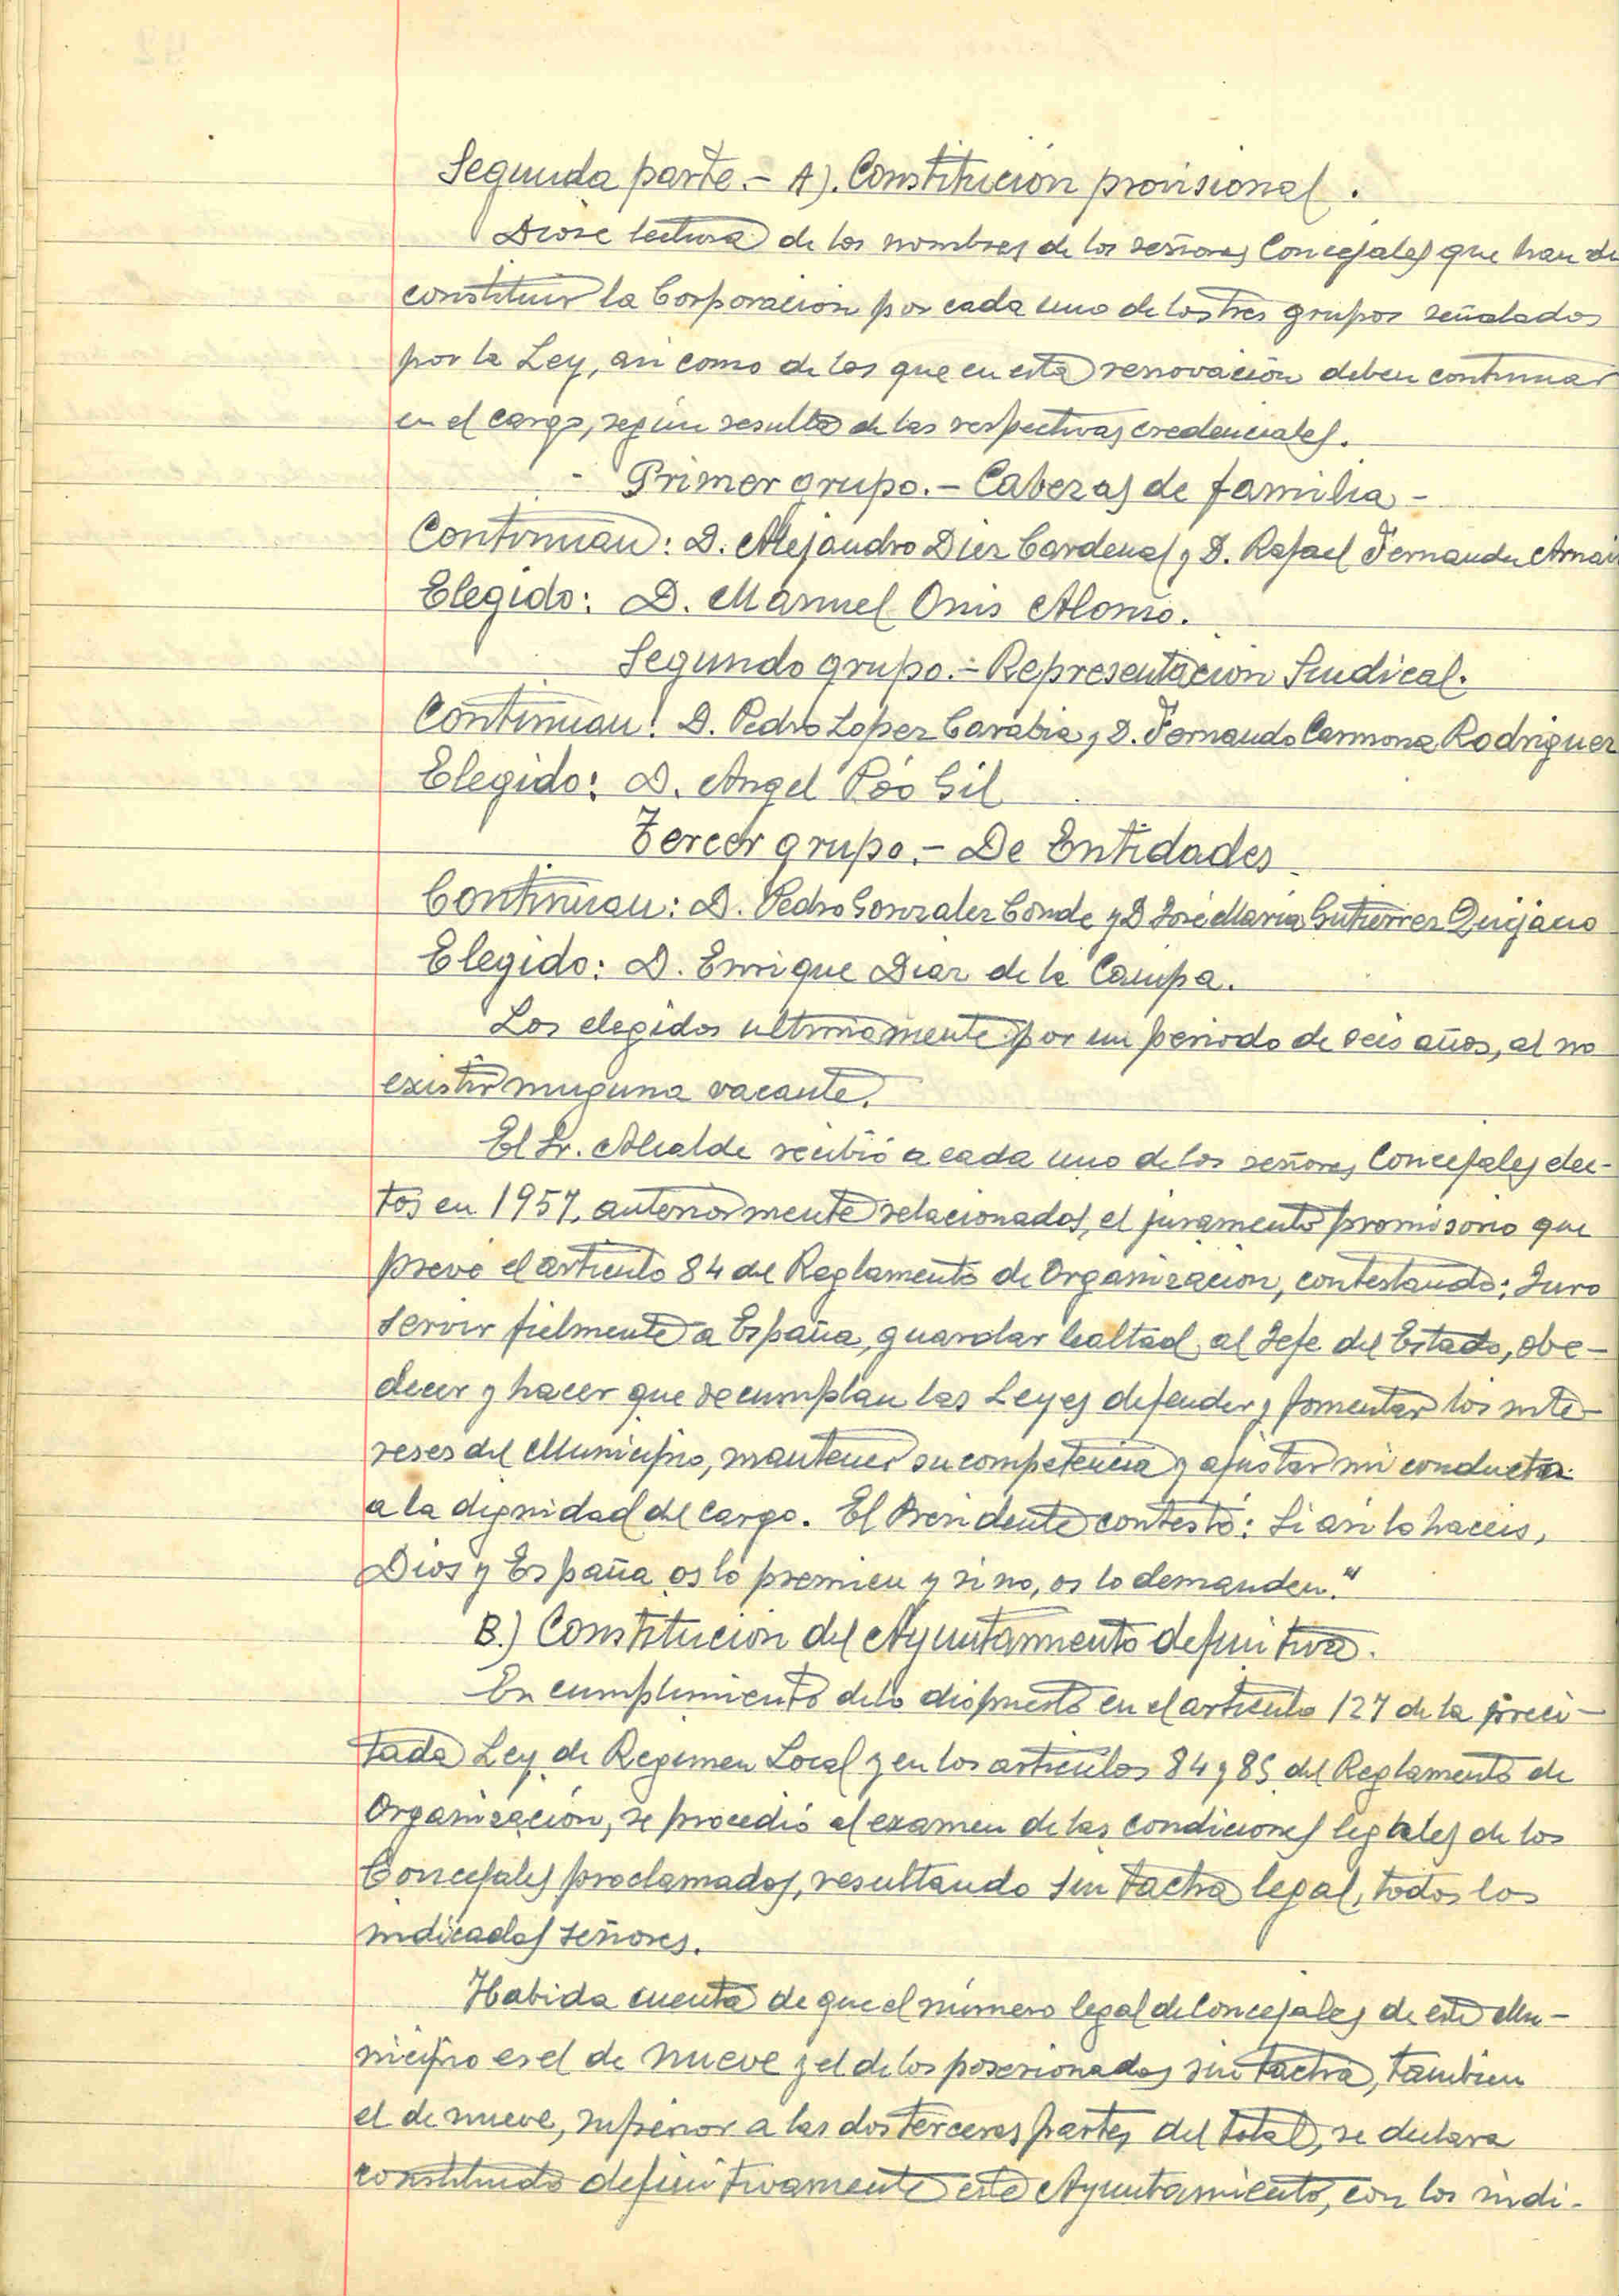 Segunda parte.- A). Constitución provisional.
Diose lectura de los nombres de los señores Concejales que han de
constituir la Corporación por cada uno de los tres grupos señalados
por la Ley, asi como de los que en esta renovación deben continuar
en el cargo, según resulta de las respectivas credenciales.
- Primer grupo.- Cabezas de familia -
Continuan: D. Alejandro Diez Cardenal y D. Rafael Fernandez Arnaiz
Elegido: D. Manuel Onis Alonso.
Segundo grupo.- Representación Sindical.
Continuan: D. Pedro Lopez Carabia y D. Fernando Carmona Rodriguez
Elegido: D. Angel Póo Gil
Tercer grupo.- De Entidades
Continuan: D. Pedro Gonzalez Conde y D José Maria Gutierrez Quijano
Elegido: D. Enrique Diaz de la Campa.
Los elegidos ultimamente por un periodo de seis años, al no
existir ninguna vacante.
El Sr. Alcalde recibió a cada uno de los señores Concejales elec-
tos en 1957, anteriormente relacionados, el juramento promisorio que
prevé el artículo 84 del Reglamento de Organización, contestando: Juro
servir fielmente a España, guardar lealtad al Jefe del Estado, obe-
decer y hacer que se cumplan las Leyes defender y fomentar los inte-
reses del Municipio, mantener su competencia y ajustar mi conducta
a la dignidad del cargo. El Presidente contestó: Si asi lo haceis,
Dios y España os lo premien y si no, os lo demanden."
B.) Constitución del Ayuntamiento definitiva.
En cumplimiento de lo dispuesto en el artículo 127 de la preci-
tada Ley de Regimen Local y en los artículos 84 y 85 del Reglamento de
Organización, se procedió al examen de las condiciones legales de los
Concejales proclamados, resultando sin tacha legal, todos los
indicados señores.
Habida cuenta de que el número legal de Concejales de este Mu-
nicipio es el de nueve y el de los posesionados sin tacha, tambien
el de nueve, superior a las dos terceras partes del total, se declara
constituido definitivamente este Ayuntamiento, con los indi-